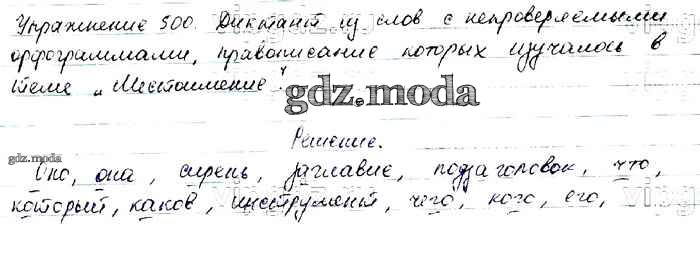 Упражнение 500. Диктант из слов с непроверяемыми
орфограммами, правописание которых изучалось в
теме „Местоимение".
gdz.moda
Решение.
gdz.moda
Оно, она, сирень, заглавие, подзаголовок, что,
который, каков, инструмент, чего, кого, его,